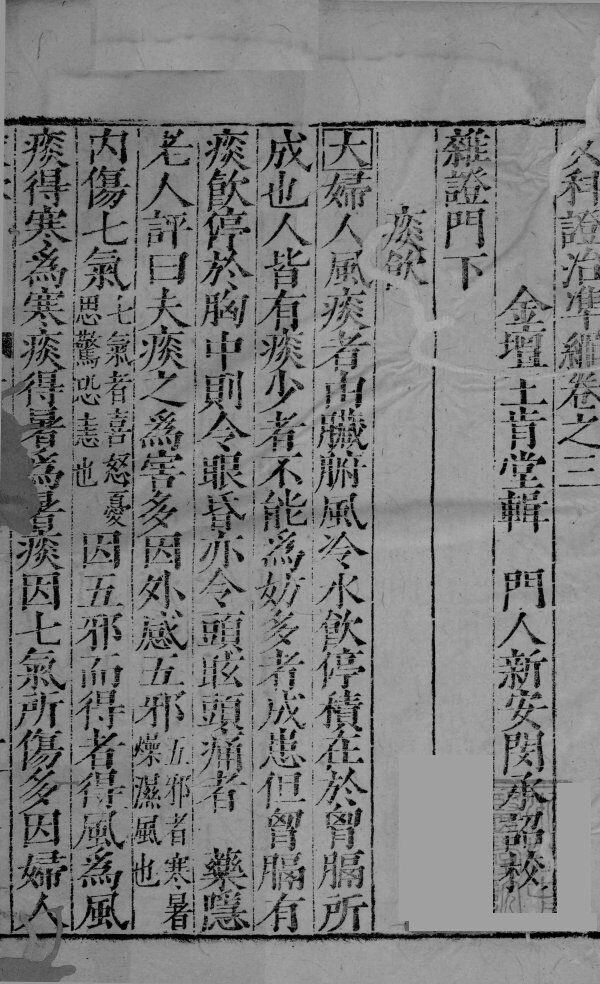 女科證治準繩卷之三
金壇王肯堂輯 門人新安閔承詔校
雜證門下
痰飲
大婦人風痰者由臟腑風冷水飲停積在於胷膈所
成也人皆有痰少者不能爲妨多者成患但胷膈有
痰飲停於胸中則令眼昏亦令頭眩頭痛者 藥隱
老人評曰夫痰之爲害多因外感五邪五邪者寒暑燥濕風也
內傷七氣七氣者喜怒憂思驚恐恚也因五邪而得者得風爲風
痰得寒爲寒痰得暑爲暑痰因七氣所傷多因婦人